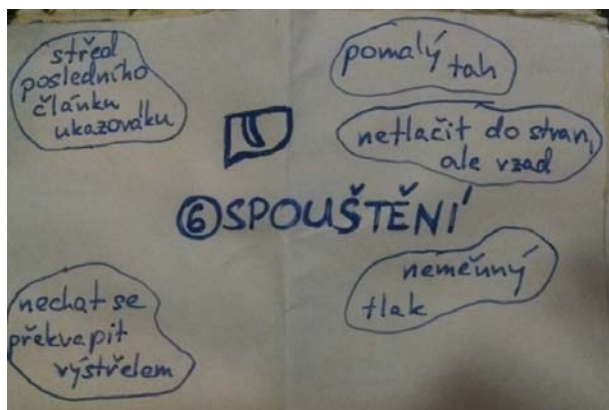 střed
posledního
článku
ukazováku
pomalý
tah
netlačit do stran,
ale vzad
⑥SPOUŠTĚNÍ
neměnný
tlak
nechat se
překvapit
výstřelem